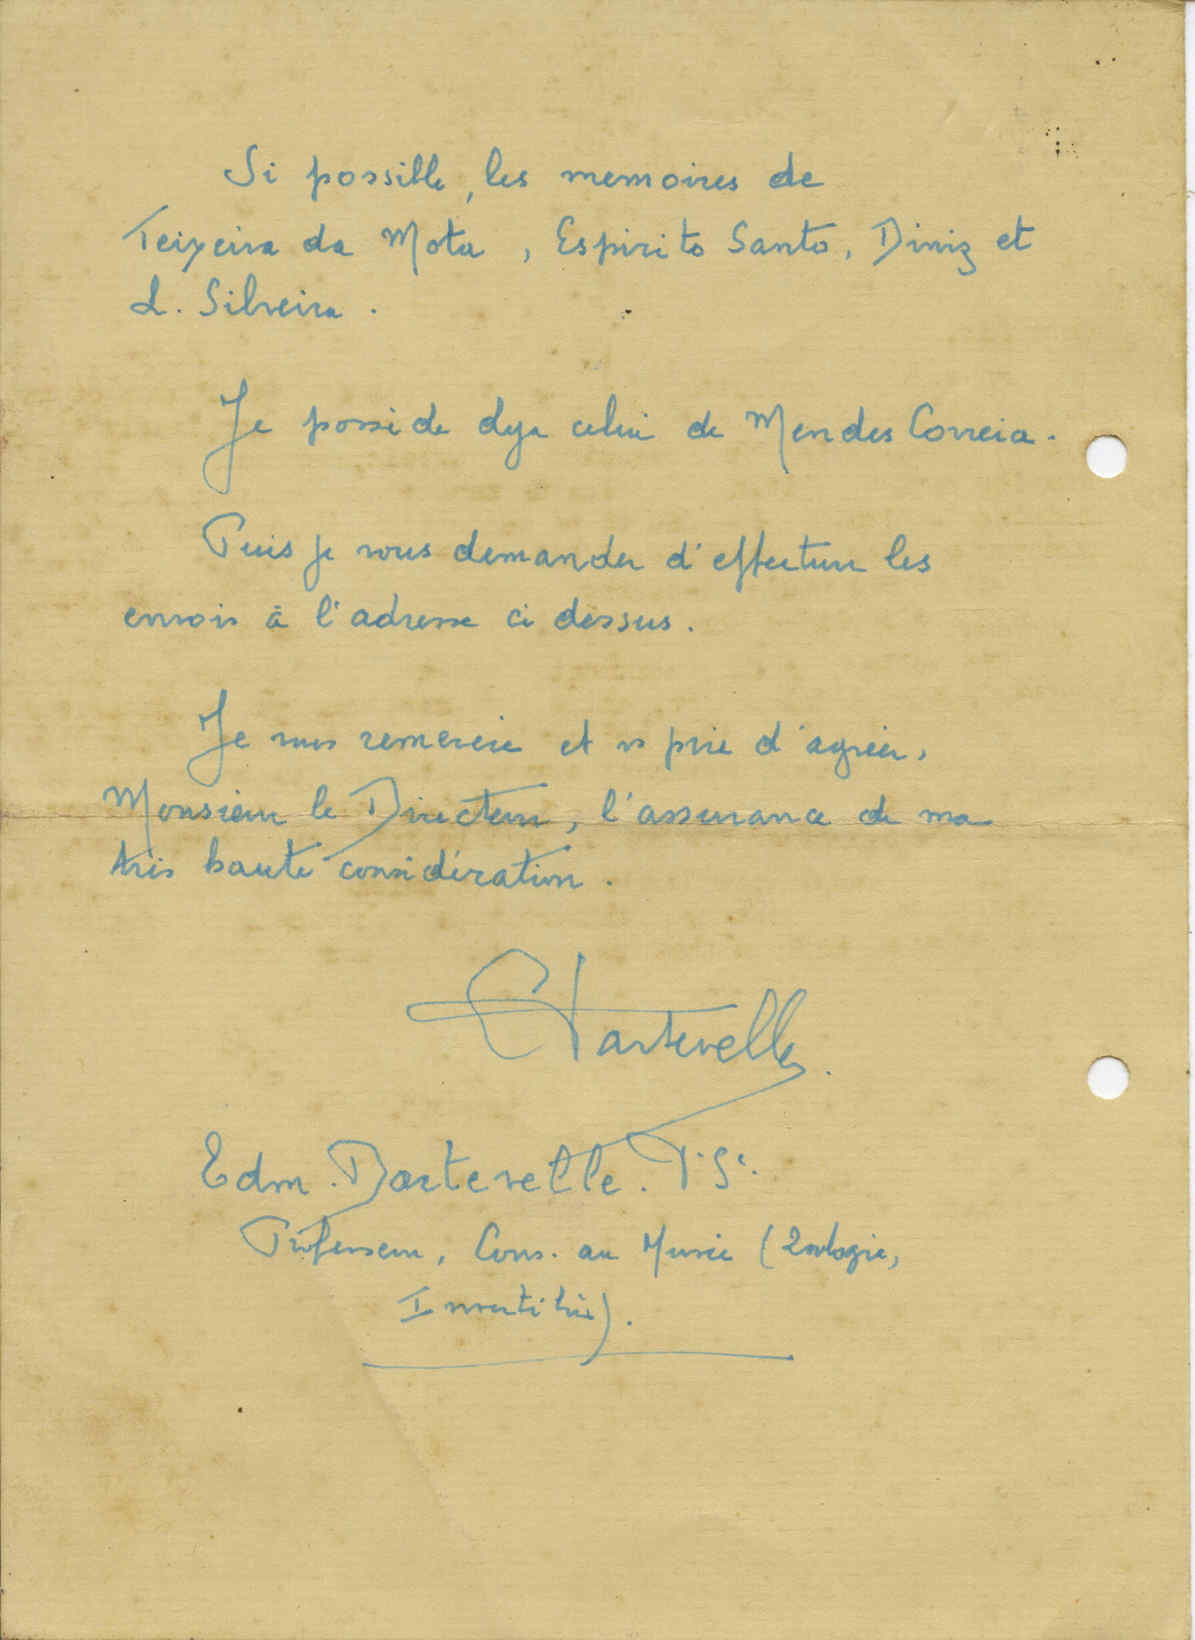 Si possible, les memoires de
Teixeira da Mota, Espirito Santo, Diniz et
L. Silveira.
Je possède deja celui de Mendes Correia.
Puis je vous demander d'effectuer les
envois à l'adresse ci dessus.
Je vous remercie et vs prie d'agréer,
Monsieur le Directeur, l'assurance de ma
très haute considération.
EDartevelle.
Edm. Dartevelle. D. Sc.
Professeur, Cons. au Musée (Zoologie,
Invertébrés).